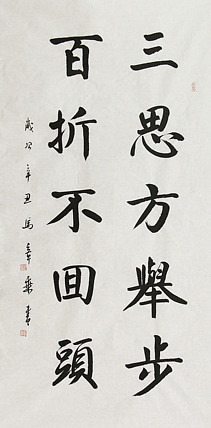 三思方舉步
百折不回頭
歲次辛丑馬章乘書